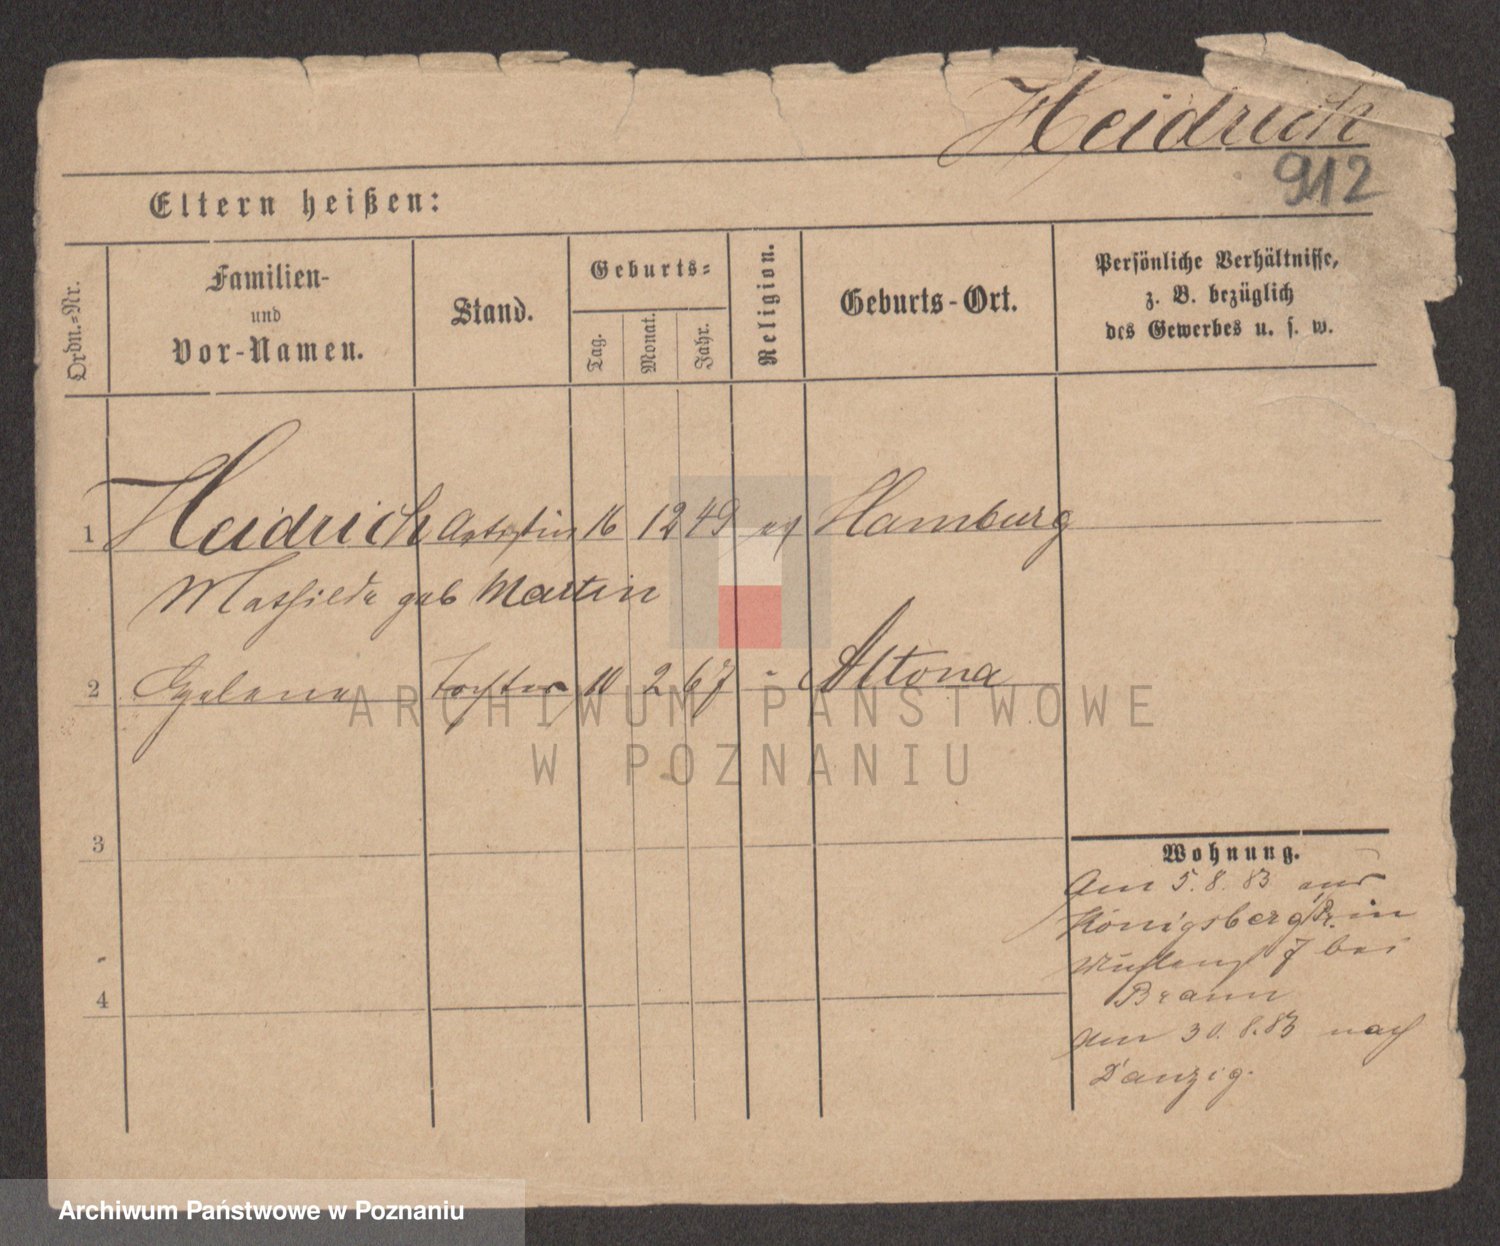 Heidrich
912
Eltern heißen:
Ordn.-Nr.
Familien-
und
Vor-Namen.
Stand.
Geburts-
Tag.
Monat.
Jahr.
Religion.
Geburts-Ort.
Persönliche Verhältnisse,
z. B. bezüglich
des Gewerbes u. s. w.
1 Heidrich Artistin 16 12 49 ev Hamburg
Mathilde geb Martin
2 Helene Tochter 10 2 67 " Altona
3
4
Wohnung.
Am 5.8.83 aus
Königsberg/Pr. in
7 bei
Braun
Am 30.8.83 nach
Danzig.
ARCHIWUM PAŃSTWOWE
W POZNANIU
Archiwum Państwowe w Poznaniu